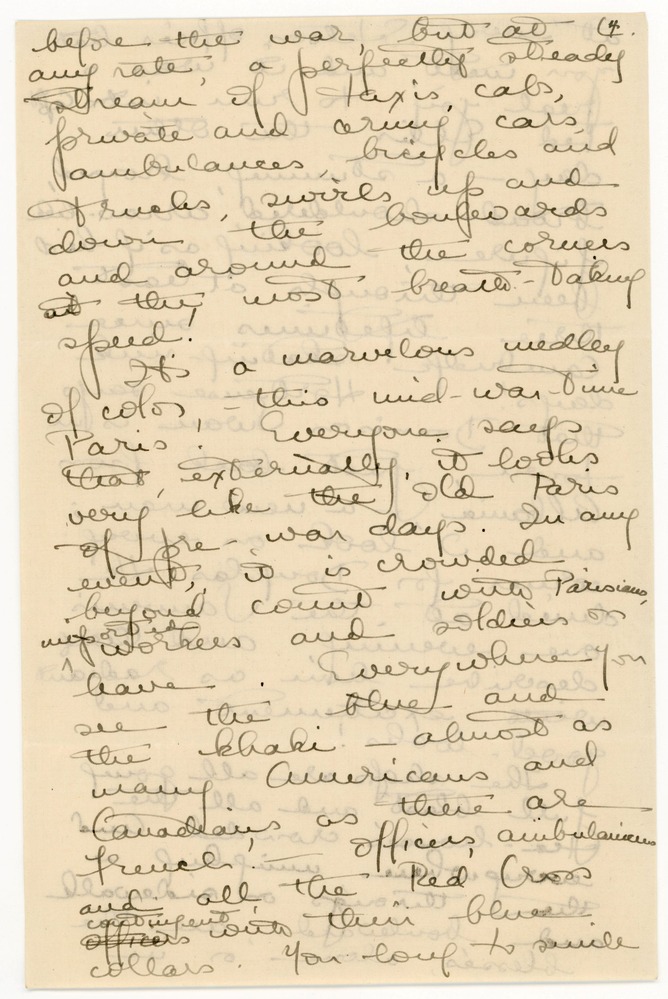 (4.
before the war, but at
any rate, a perfectly steady
stream of taxis, cabs,
private and army cars,
ambulances, bicycles and
trucks, swirls up and
down the boulevards
and around the corners
at the most breath-taking
speed!
It's a marvelous medley
of color, - this mid-war-time
Paris! Everyone says
that, externally, it looks
very like the old Paris
of pre-war days. In any
event, it is crowded
beyond count with Parisians,
imported workers and soldiers on
leave. Everywhere you
see the blue and
the khaki - almost as
many Americans and
Canadians as there are
French! - officers, ambulanciers
and all the Red Cross
contingent with their blue
collars. You long to smile